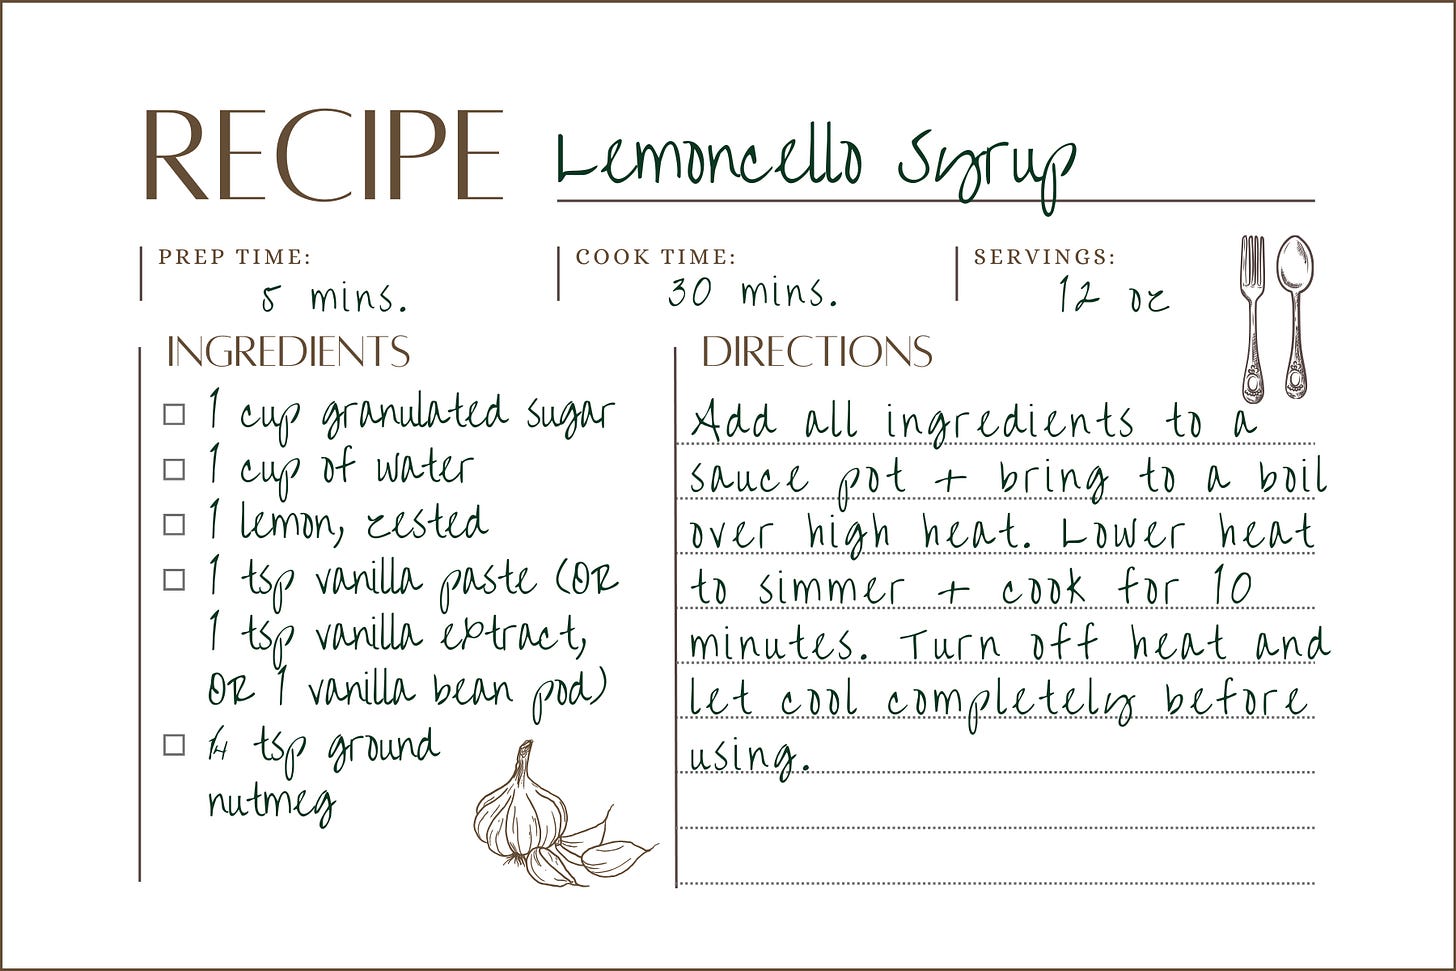 RECIPE Lemoncello Syrup
PREP TIME: COOK TIME: SERVINGS:
5 mins. 30 mins. 12 oz
INGREDIENTS
1 cup granulated sugar
1 cup of water
1 lemon, zested
1 tsp vanilla paste (OR
1 tsp vanilla extract,
OR 1 vanilla bean pod)
¼ tsp ground
nutmeg
DIRECTIONS
Add all ingredients to a
sauce pot + bring to a boil
over high heat. Lower heat
to simmer + cook for 10
minutes. Turn off heat and
let cool completely before
using.